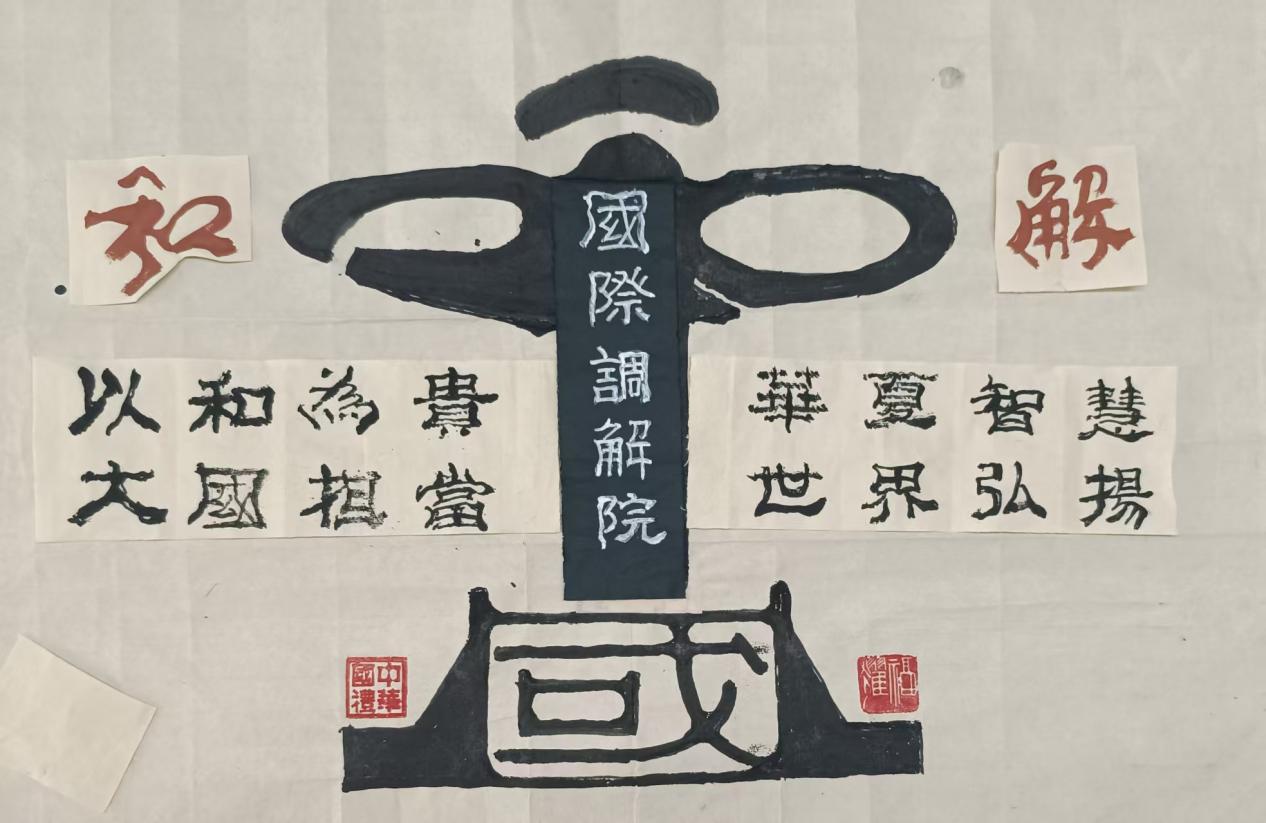 和
解
國際調解院
以和為貴
大國担當
華夏智慧
世界弘揚
國
中華國禮